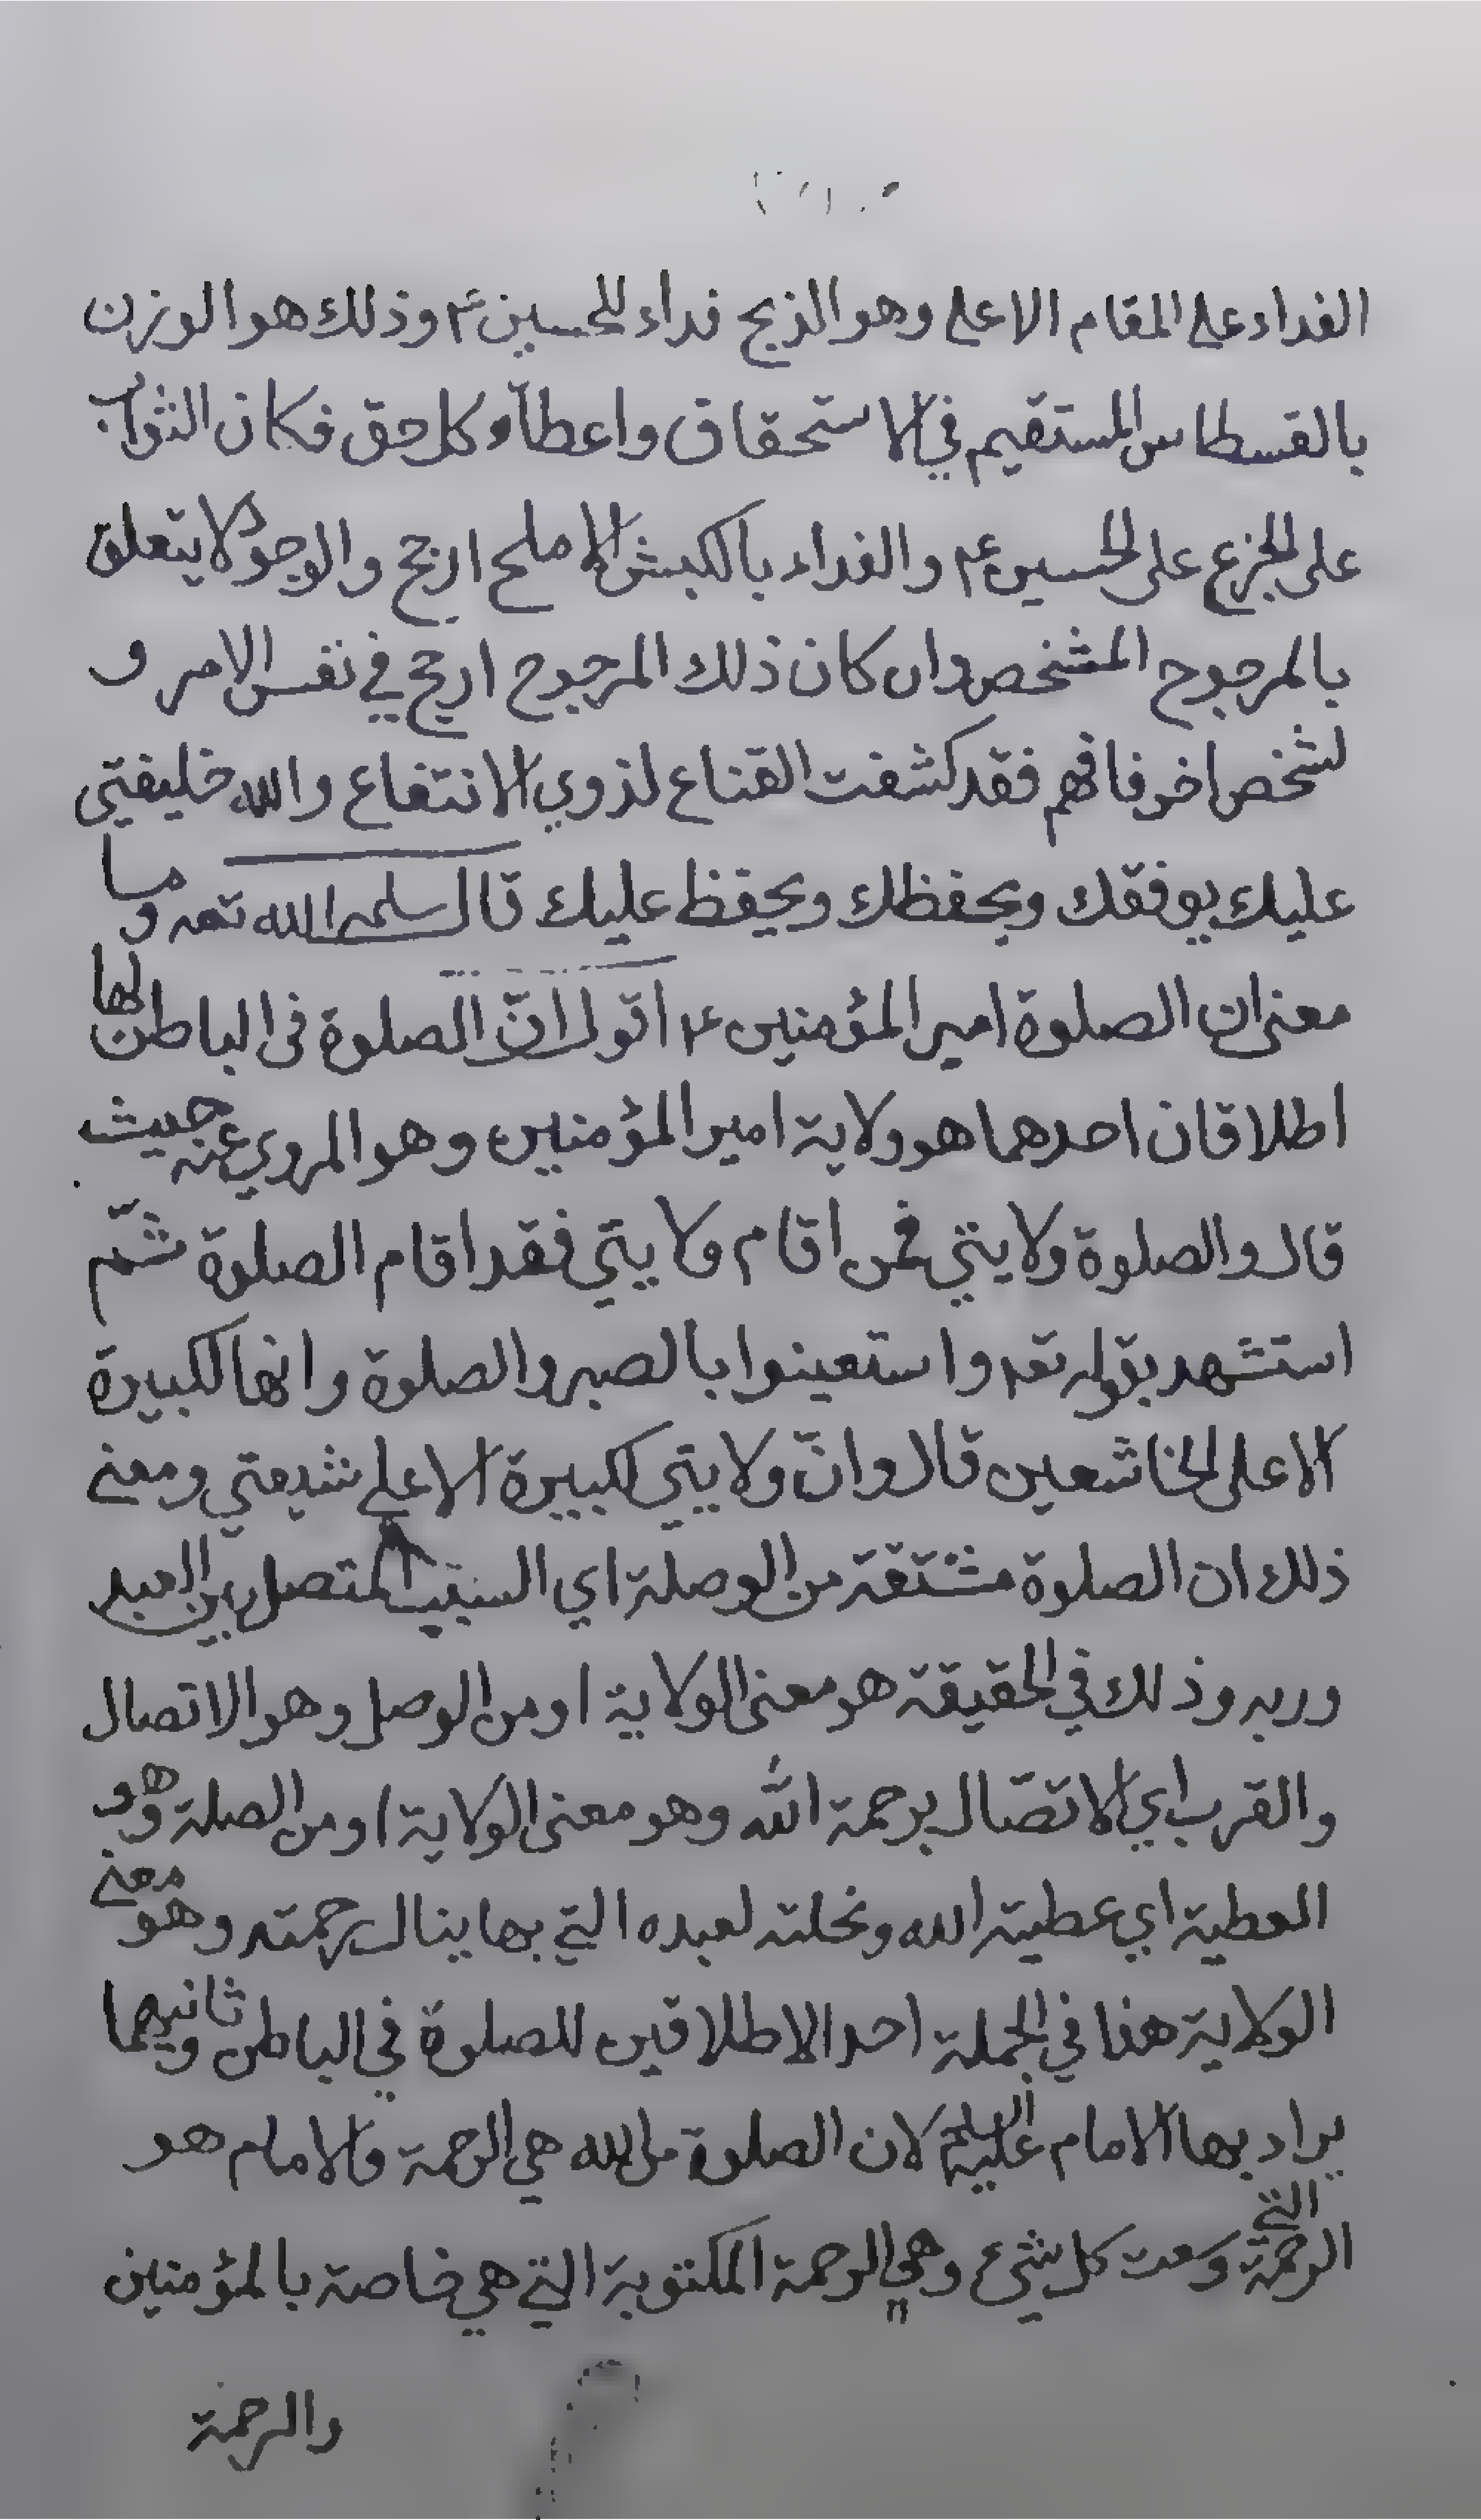 الفداء على المقام الاعلى وهو الذبح فداء للحسين ع٢ وذلك هو الوزن
بالقسطاس المستقيم في الاستحقاق واعطآء كل حق فكان الثواب
على الجزع على الحسين ع٢ والفداء بالكبش الاملح ارجح والوجود لا يتعلق
بالمرجوح المشخص وان كان ذلك المرجوح ارجح في نفس الامر و
لشخص اخر فافهم فقد كشفت القناع لذوي الانتفاع والله خليفتي
عليك يوفقك ويحفظك ويحفظ عليك قال سلمه الله تعه وما
معنى ان الصلوة امير المؤمنين ع٢ اقول انّ الصلوة في الباطن لها
اطلاقان احدهما هو ولاية امير المؤمنين وهو المروي عنه حيث
قال والصلوة ولايتي فمن اقام ولايتي فقد اقام الصلوة ثمّ
استشهد بقوله تعه واستعينوا بالصبر والصلوة وانها لكبيرة
الا على الخاشعين قال وانّ ولايتي لكبيرة الا على شيعتي ومعنى
ذلك ان الصلوة مشتقة من الوصلة اي السبب المتصل بين العبد
وربه وذلك في الحقيقة هو معنى الولاية او من الوصل وهو الاتصال
والقرب اي الاتصّال برحمة الله وهو معنى الولاية او من الصلة وهو
العطية اي عطية الله ونحلته لعبده التي بها ينال رحمته وهو معنى
الولاية هذا في الجملة احد الاطلاقين للصلوة في الباطن وثانيهما
يراد بها الامام عليه السلام لان الصلوة من الله هي الرحمة والامام هو
الرحمة التي وسعت كل شيء وهي الرحمة المكتوبة التي هي خاصة بالمؤمنين
والرحمة